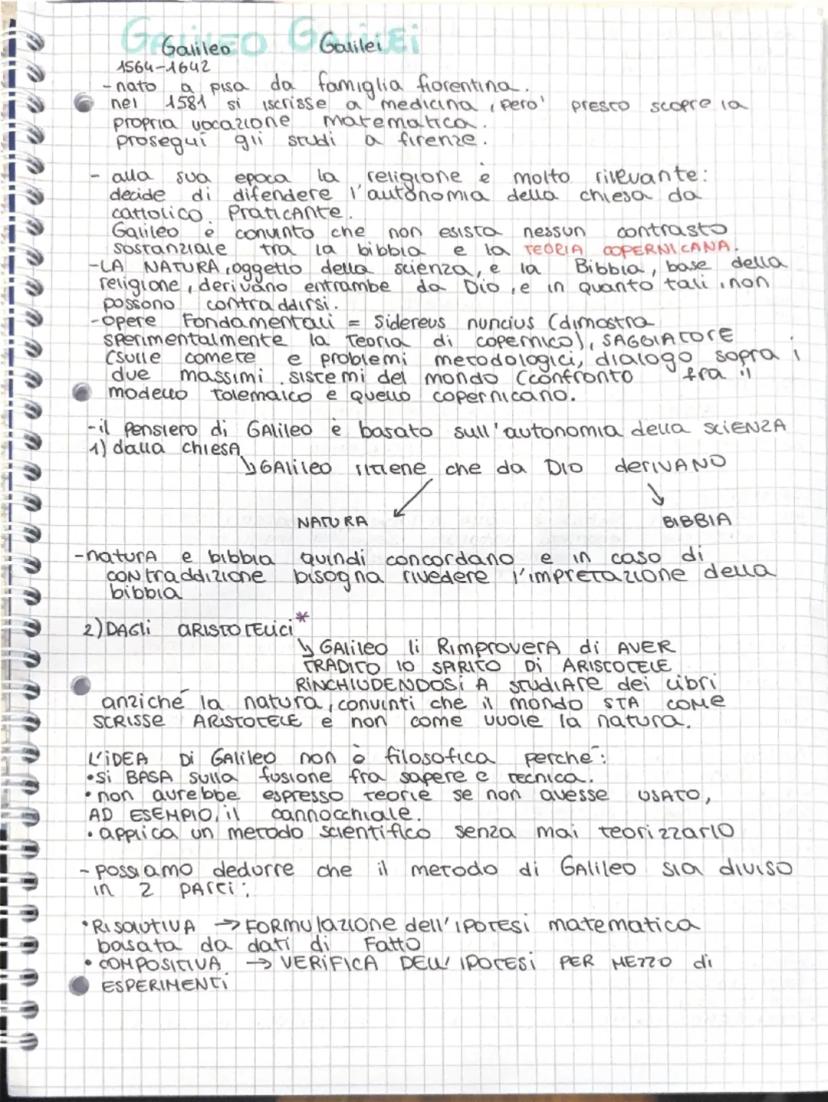 GALILEO GALILEI
Galileo Galilei
1564-1642
-nato a pisa da famiglia fiorentina.
nel 1581 si iscrisse a medicina, pero' presto scopre la
propria vocazione matematica.
prosegui gli studi a firenze.
- alla sua epoca la religione è molto rilevante:
decide di difendere l'autonomia della chiesa da
cattolico praticante.
Galileo è convinto che non esista nessun contrasto
sostanziale tra la bibbia e la TEORIA COPERNICANA.
-LA NATURA, oggetto della scienza, e la Bibbia, base della
religione, derivano entrambe da Dio, e in quanto tali, non
possono contraddirsi.
-opere Fondamentali = Sidereus nuncius (dimostra
sperimentalmente la Teoria di copernico), SAGGIATORE
(sulle comete e problemi metodologici, dialogo sopra i
due massimi sistemi del mondo (confronto fra il
modello tolemaico e quello copernicano.
-il pensiero di GALileo è basato sull'autonomia della SCIENZA
1) dalla chiesa
↳ GALileo ritiene che da DIO derIVANO
NATURA BIBBIA
-naturA e bibbia quindi concordano e in caso di
contraddizione bisogna rivedere l'impretazione della
bibbia
2) DAGli ARISTOTELICI*
↳ GALileo li RimproverA di AVER
TRADITO lO SPIRITO Di ARISTOTELE
RINCHIUDENDOSi A STUDIARE dei libri
anziché la natura, convinti che il mondo STA COME
SCRISSE ARISTOTELE e non come vuole la natura.
L'iDEA Di Galileo non è filosofica perchè:
•Si BASA sulla fusione fra sapere e tecnica.
•non avrebbe espresso teorie se non avesse USATO,
AD ESEMPIO, il cannocchiale.
•applica un metodo scientifico senza mai teorizzarlo
- possiamo dedurre che il metodo di GALileo sia diviso
in 2 parti:
•RISOLUTIVA → FORMulazione dell'ipotesi matematica
basata da dati di Fatto
•COMPOSITIVA → VERIFICA DELL' IPOTESI PER MEZZO di
ESPERIMENTi